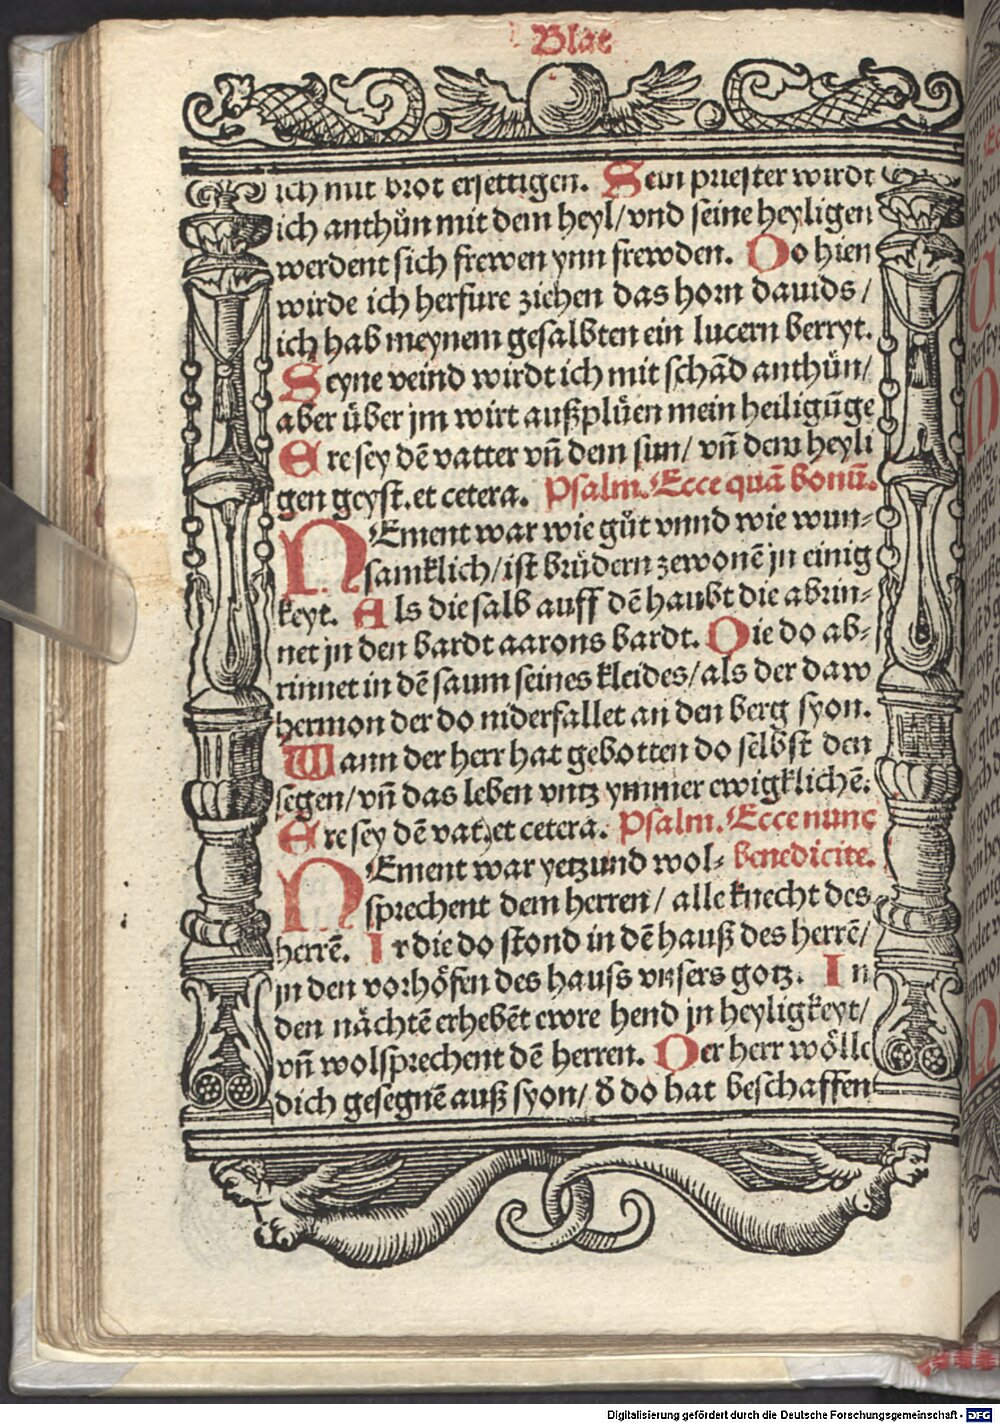 Blat
ich mit brot ersettigen. Sein priester wirdt
ich anthůn mit dem heyl/ vnd seine heyligen
werdent sich frewen ynn frewden. Do hien
wirde ich herfure ziehen das horn dauids /
ich hab meynem gesalbten ein lucern berryt.
Seyne veind wirdt ich mit schãd anthůn/
aber über jm wirt außplüen mein heiligũge
Ere sey dẽ vatter vñ dem sun/ vñ dem heyli
gen geyst. et cetera. Psalm. Ecce quã bonũ.
NEment war wie gůt vnnd wie wun⸗
samklich/ ist brůdern zewonẽ jn einig
keyt. Als die salb auff dẽ haubt die abrin⸗
net jn den bardt aarons bardt. Die do ab⸗
rinnet in dẽ saum seines kleides/ als der daw
hermon der do niderfallet an den berg syon.
Wann der herr hat gebotten do selbst den
segen/ vñ das leben vntz ymmer ewigklichẽ.
Ere sey dẽ vat, et cetera. Psalm. Ecce nunc
NEment war yetzund wol⸗ benedicite.
sprechent dem herren/ alle knecht des
herrẽ. Ir die do stond in dẽ hauß des herrẽ/
jn den vorhöfen des hauss vnsers gotz. In
den nächtẽ erhebẽt ewre hend jn heyligkeyt/
vñ wolsprechent dẽ herren. Der herr wölle
dich gesegnẽ auß syon/ d̕ do hat beschaffen
Digitalisierung gefördert durch die Deutsche Forschungsgemeinschaft - DFG